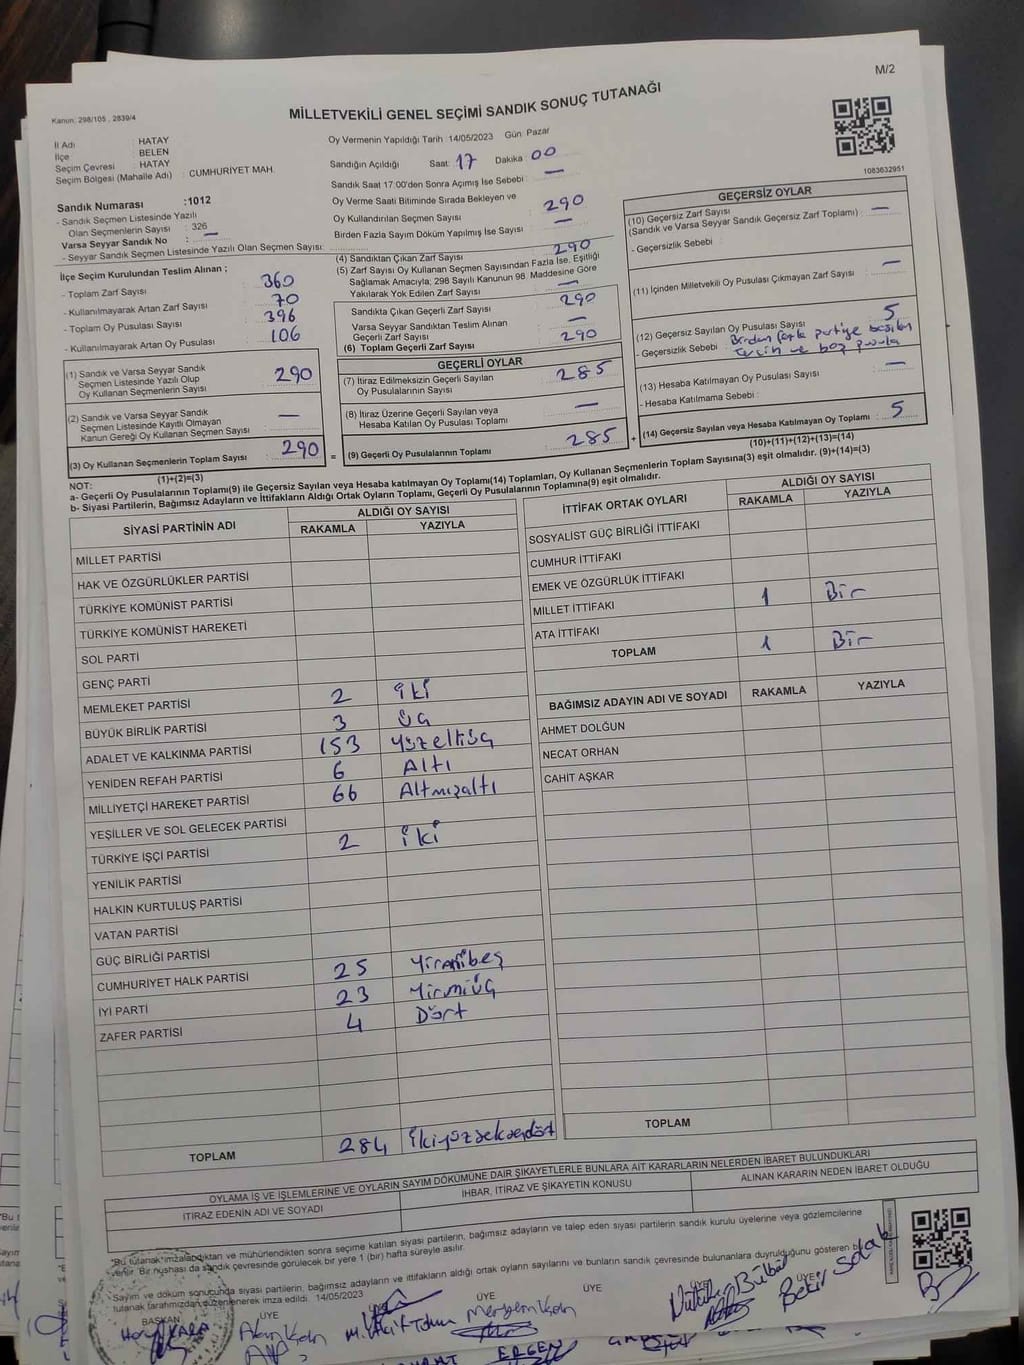 M/2
Kanun: 298/105 , 2839/4
MİLLETVEKİLİ GENEL SEÇİMİ SANDIK SONUÇ TUTANAĞI
İl Adı : HATAY
İlçe : BELEN
Seçim Çevresi : HATAY
Seçim Bölgesi (Mahalle Adı) : CUMHURİYET MAH.
Sandık Numarası :1012
- Sandık Seçmen Listesinde Yazılı
Olan Seçmenlerin Sayısı : 326
Varsa Seyyar Sandık No : —
- Seyyar Sandık Seçmen Listesinde Yazılı Olan Seçmen Sayısı:
İlçe Seçim Kurulundan Teslim Alınan ;
- Toplam Zarf Sayısı : 360
- Kullanılmayarak Artan Zarf Sayısı : 70
- Toplam Oy Pusulası Sayısı : 396
- Kullanılmayarak Artan Oy Pusulası : 106
(1) Sandık ve Varsa Seyyar Sandık
Seçmen Listesinde Yazılı Olup
Oy Kullanan Seçmenlerin Sayısı : 290
(2) Sandık ve Varsa Seyyar Sandık
Seçmen Listesinde Kayıtlı Olmayan
Kanun Gereği Oy Kullanan Seçmen Sayısı : —
(3) Oy Kullanan Seçmenlerin Toplam Sayısı : 290
(1)+(2)=(3)
Oy Vermenin Yapıldığı Tarih :14/05/2023 Gün Pazar
Sandığın Açıldığı Saat: 17 Dakika 00
Sandık Saat 17:00'den Sonra Açımış İse Sebebi : —
Oy Verme Saati Bitiminde Sırada Bekleyen ve
Oy Kullandırılan Seçmen Sayısı : 290
Birden Fazla Sayım Döküm Yapılmış İse Sayısı : —
(4) Sandıktan Çıkan Zarf Sayısı : 290
(5) Zarf Sayısı Oy Kullanan Seçmen Sayısından Fazla İse, Eşitliği
Sağlamak Amacıyla; 298 Sayılı Kanunun 98. Maddesine Göre
Yakılarak Yok Edilen Zarf Sayısı : —
Sandıkta Çıkan Geçerli Zarf Sayısı : 290
Varsa Seyyar Sandıktan Teslim Alınan
Geçerli Zarf Sayısı : —
(6) Toplam Geçerli Zarf Sayısı : 290
GEÇERLİ OYLAR
(7) İtiraz Edilmeksizin Geçerli Sayılan
Oy Pusulalarının Sayısı : 285
(8) İtiraz Üzerine Geçerli Sayılan veya
Hesaba Katılan Oy Pusulası Toplamı : —
= (9) Geçerli Oy Pusulalarının Toplamı : 285
1083632951
GEÇERSİZ OYLAR
(10) Geçersiz Zarf Sayısı
(Sandık ve Varsa Seyyar Sandık Geçersiz Zarf Toplamı) : —
- Geçersizlik Sebebi :
(11) İçinden Milletvekili Oy Pusulası Çıkmayan Zarf Sayısı : —
(12) Geçersiz Sayılan Oy Pusulası Sayısı : 5
- Geçersizlik Sebebi : Birden fazla partiye basılan
tercih ve boş pusula
(13) Hesaba Katılmayan Oy Pusulası Sayısı : —
- Hesaba Katılmama Sebebi :
+ (14) Geçersiz Sayılan veya Hesaba Katılmayan Oy Toplamı : 5
(10)+(11)+(12)+(13)=(14)
NOT:
a- Geçerli Oy Pusulalarının Toplamı(9) ile Geçersiz Sayılan veya Hesaba katılmayan Oy Toplamı(14) Toplamları, Oy Kullanan Seçmenlerin Toplam Sayısına(3) eşit olmalıdır. (9)+(14)=(3)
b- Siyasi Partilerin, Bağımsız Adayların ve İttifakların Aldığı Ortak Oyların Toplamı, Geçerli Oy Pusulalarının Toplamına(9) eşit olmalıdır.
SİYASİ PARTİNİN ADI ALDIĞI OY SAYISI
RAKAMLA YAZIYLA
MİLLET PARTİSİ
HAK VE ÖZGÜRLÜKLER PARTİSİ
TÜRKİYE KOMÜNİST PARTİSİ
TÜRKİYE KOMÜNİST HAREKETİ
SOL PARTİ
GENÇ PARTİ
MEMLEKET PARTİSİ 2 iki
BÜYÜK BİRLİK PARTİSİ 3 üç
ADALET VE KALKINMA PARTİSİ 153 yüzelliüç
YENİDEN REFAH PARTİSİ 6 Altı
MİLLİYETÇİ HAREKET PARTİSİ 66 Altmışaltı
YEŞİLLER VE SOL GELECEK PARTİSİ
TÜRKİYE İŞÇİ PARTİSİ 2 iki
YENİLİK PARTİSİ
HALKIN KURTULUŞ PARTİSİ
VATAN PARTİSİ
GÜÇ BİRLİĞİ PARTİSİ
CUMHURİYET HALK PARTİSİ 25 Yirmibeş
İYİ PARTİ 23 Yirmiüç
ZAFER PARTİSİ 4 Dört
TOPLAM 284 ikiyüzseksendört
İTTİFAK ORTAK OYLARI ALDIĞI OY SAYISI
RAKAMLA YAZIYLA
SOSYALİST GÜÇ BİRLİĞİ İTTİFAKI
CUMHUR İTTİFAKI
EMEK VE ÖZGÜRLÜK İTTİFAKI
MİLLET İTTİFAKI 1 Bir
ATA İTTİFAKI
TOPLAM 1 Bir
BAĞIMSIZ ADAYIN ADI VE SOYADI RAKAMLA YAZIYLA
AHMET DOLĞUN
NECAT ORHAN
CAHİT AŞKAR
TOPLAM
OYLAMA İŞ VE İŞLEMLERİNE VE OYLARIN SAYIM DÖKÜMÜNE DAİR ŞİKAYETLERLE BUNLARA AİT KARARLARIN NELERDEN İBARET BULUNDUKLARI
İTİRAZ EDENİN ADI VE SOYADI İHBAR, İTİRAZ VE ŞİKAYETİN KONUSU ALINAN KARARIN NEDEN İBARET OLDUĞU
"Bu tutanak" imzalandıktan ve mühürlendikten sonra seçime katılan siyasi partilerin, bağımsız adayların ve talep eden siyasi partilerin sandık kurulu üyelerine veya gözlemcilerine
verilir. Bir nüshası da sandık çevresinde görülecek bir yere 1 (bir) hafta süreyle asılır.
Sayım ve döküm sonucunda siyasi partilerin, bağımsız adayların ve ittifakların aldığı ortak oyların sayısını ve bunların sandık çevresinde bulunanlara duyrulduğunu gösteren
tutanak tarafımızdan düzenlenerek imza edildi. 14/05/2023
BAŞKAN ÜYE ÜYE ÜYE ÜYE ÜYE
KARA
Meryem
Bülbül
Bekir Solak
ERGEN